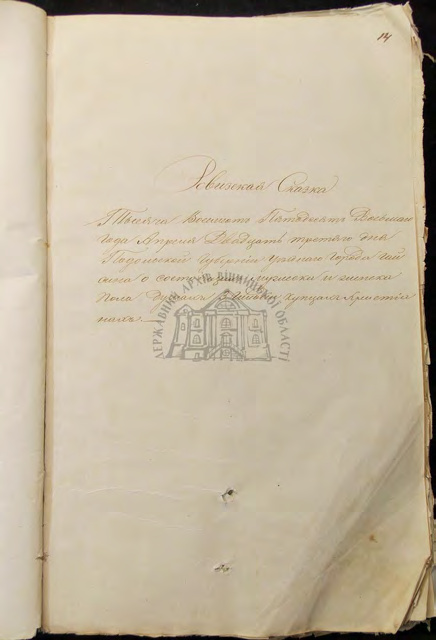 14
Ревизская Сказка
Тысяча Восемсотъ Пятьдесятъ Восьмаго
Года Апреля Двадцать третьяго дня
Подольской Губернии Уезднаго Города Гай
сина о состоящихъ мужеска и женска
пола душахъ купцахъ Христиа
нахъ
ДЕРЖАВНИЙ АРХІВ ВІННИЦЬКОЇ ОБЛАСТІ